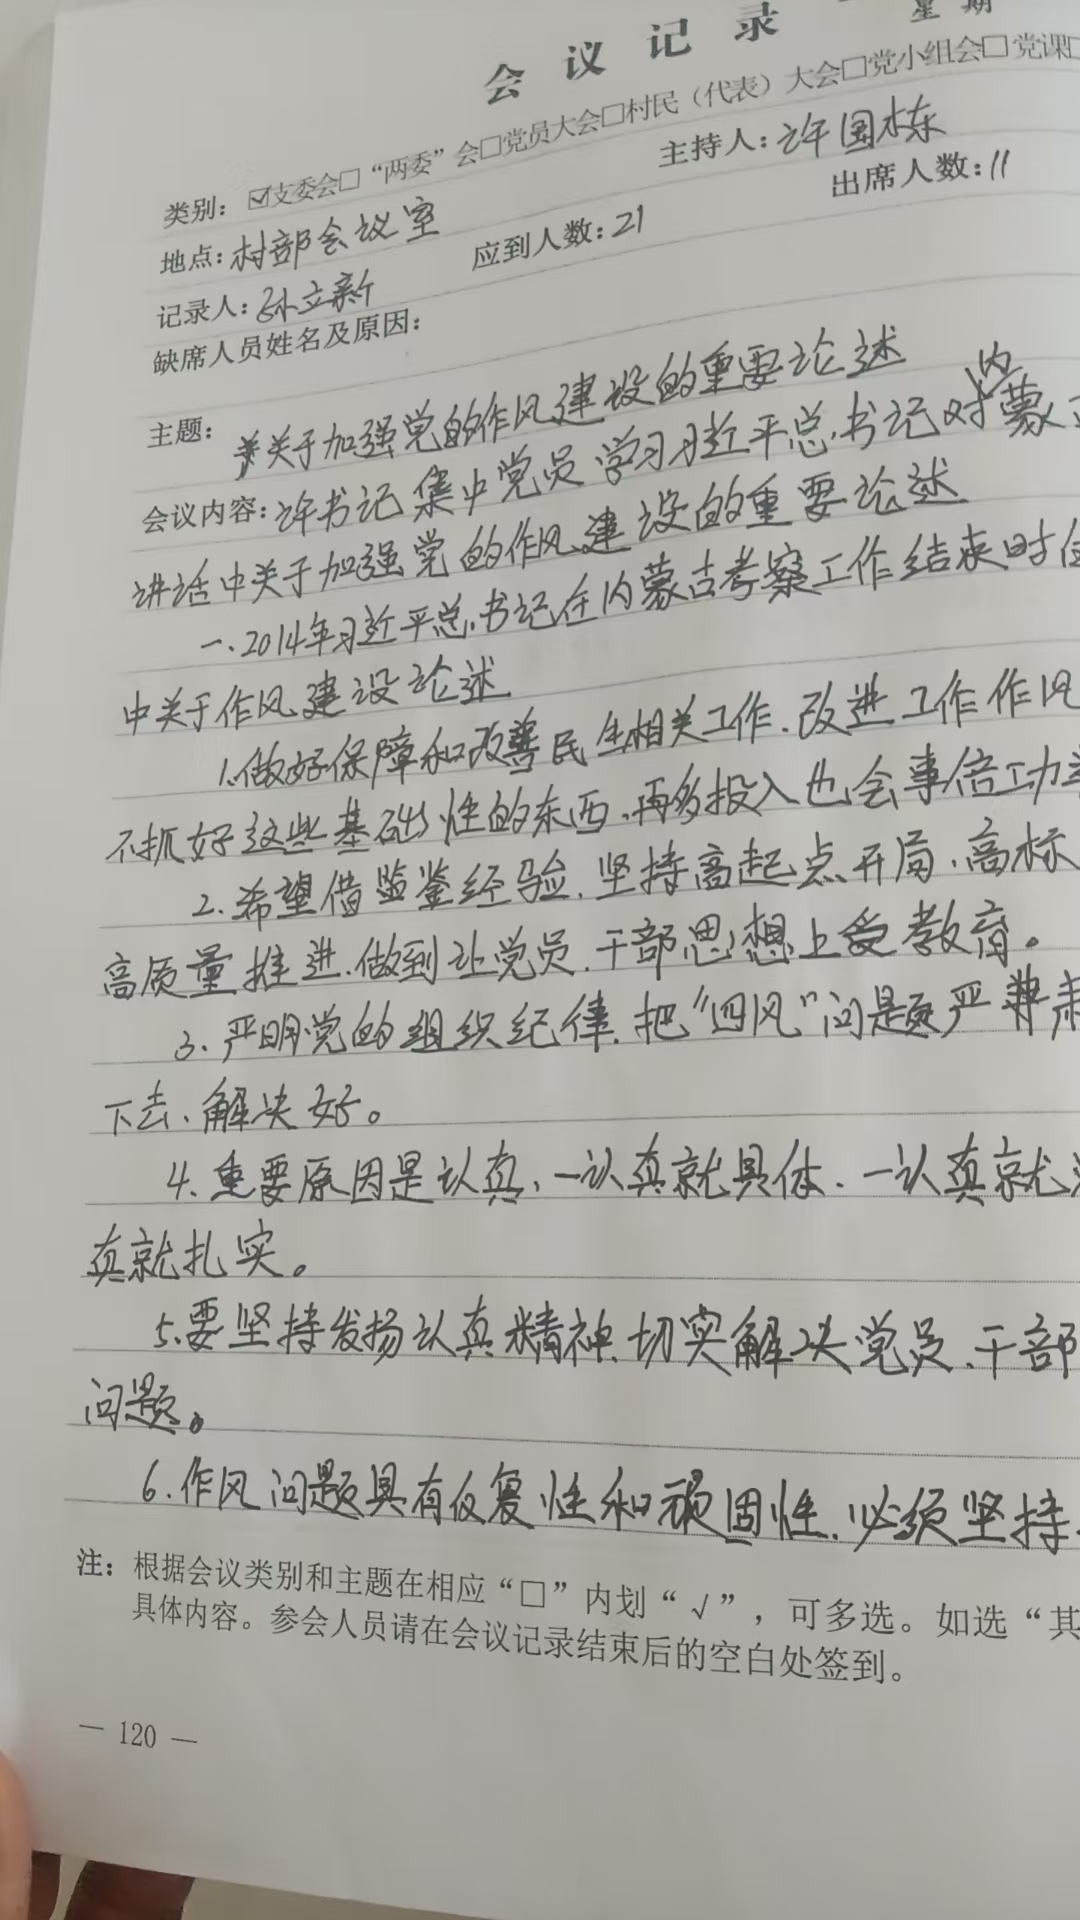 会议记录
星期
类别：☑支委会□“两委”会□党员大会□村民（代表）大会□党小组会□党课□
地点：村部会议室 主持人：许国栋
记录人：孙立新 应到人数：21 出席人数：11
缺席人员姓名及原因：
主题：关于加强党的作风建设的重要论述
会议内容：许书记集中党员学习习近平总书记对内蒙
讲话中关于加强党的作风建设的重要论述
一、2014年习近平总书记在内蒙古考察工作结束时
中关于作风建设论述
1、做好保障和改善民生相关工作、改进工作作风
不抓好这些基础性的东西、再多投入也会事倍功半
2、希望借监鉴经验、坚持高起点开局、高标
高质量推进、做到让党员、干部思想上受教育。
3、严明党的组织纪律、把“四风”问题严肃
下去、解决好。
4、重要原因是认真、一认真就具体、一认真就
真就扎实。
5、要坚持发扬认真精神、切实解决党员、干部
问题。
6、作风问题具有反复性和顽固性、必须坚持
注：根据会议类别和主题在相应“□”内划“√”，可多选。如选“其
具体内容。参会人员请在会议记录结束后的空白处签到。
— 120 —